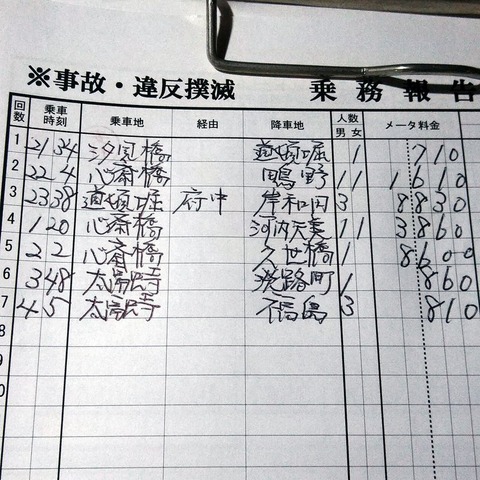 ※事故・違反撲滅 乗務報告
回数 乗車時刻 乗車地 経由 降車地 人数 男 女 メータ料金
1 2134 汐見橋 道頓堀 1 710
2 224 心斎橋 鴫野 1 1 1610
3 2338 道頓堀 府中 岸和田 3 8830
4 120 心斎橋 河内天美 1 1 3860
5 22 心斎橋 久世橋 1 8600
6 348 太融寺 淡路町 1 860
7 45 太融寺 福島 3 810
8
9
10